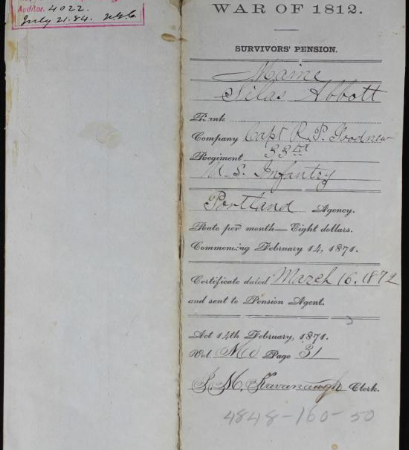 Auditor. 4022.
July 21. 84.
WAR OF 1812.
SURVIVORS' PENSION.
Maine
Silas Abbott
Rank
Company Capt R. P. Goodnew
Regiment 33rd
U. S. Infantry
Portland Agency.
Rate per month—Eight dollars.
Commencing February 14, 1871.
Certificate dated March 16, 1872
and sent to Pension Agent.
Act 14th February, 1871.
Vol. Me Page 31
Kavanaugh Clerk.
4848-160-50